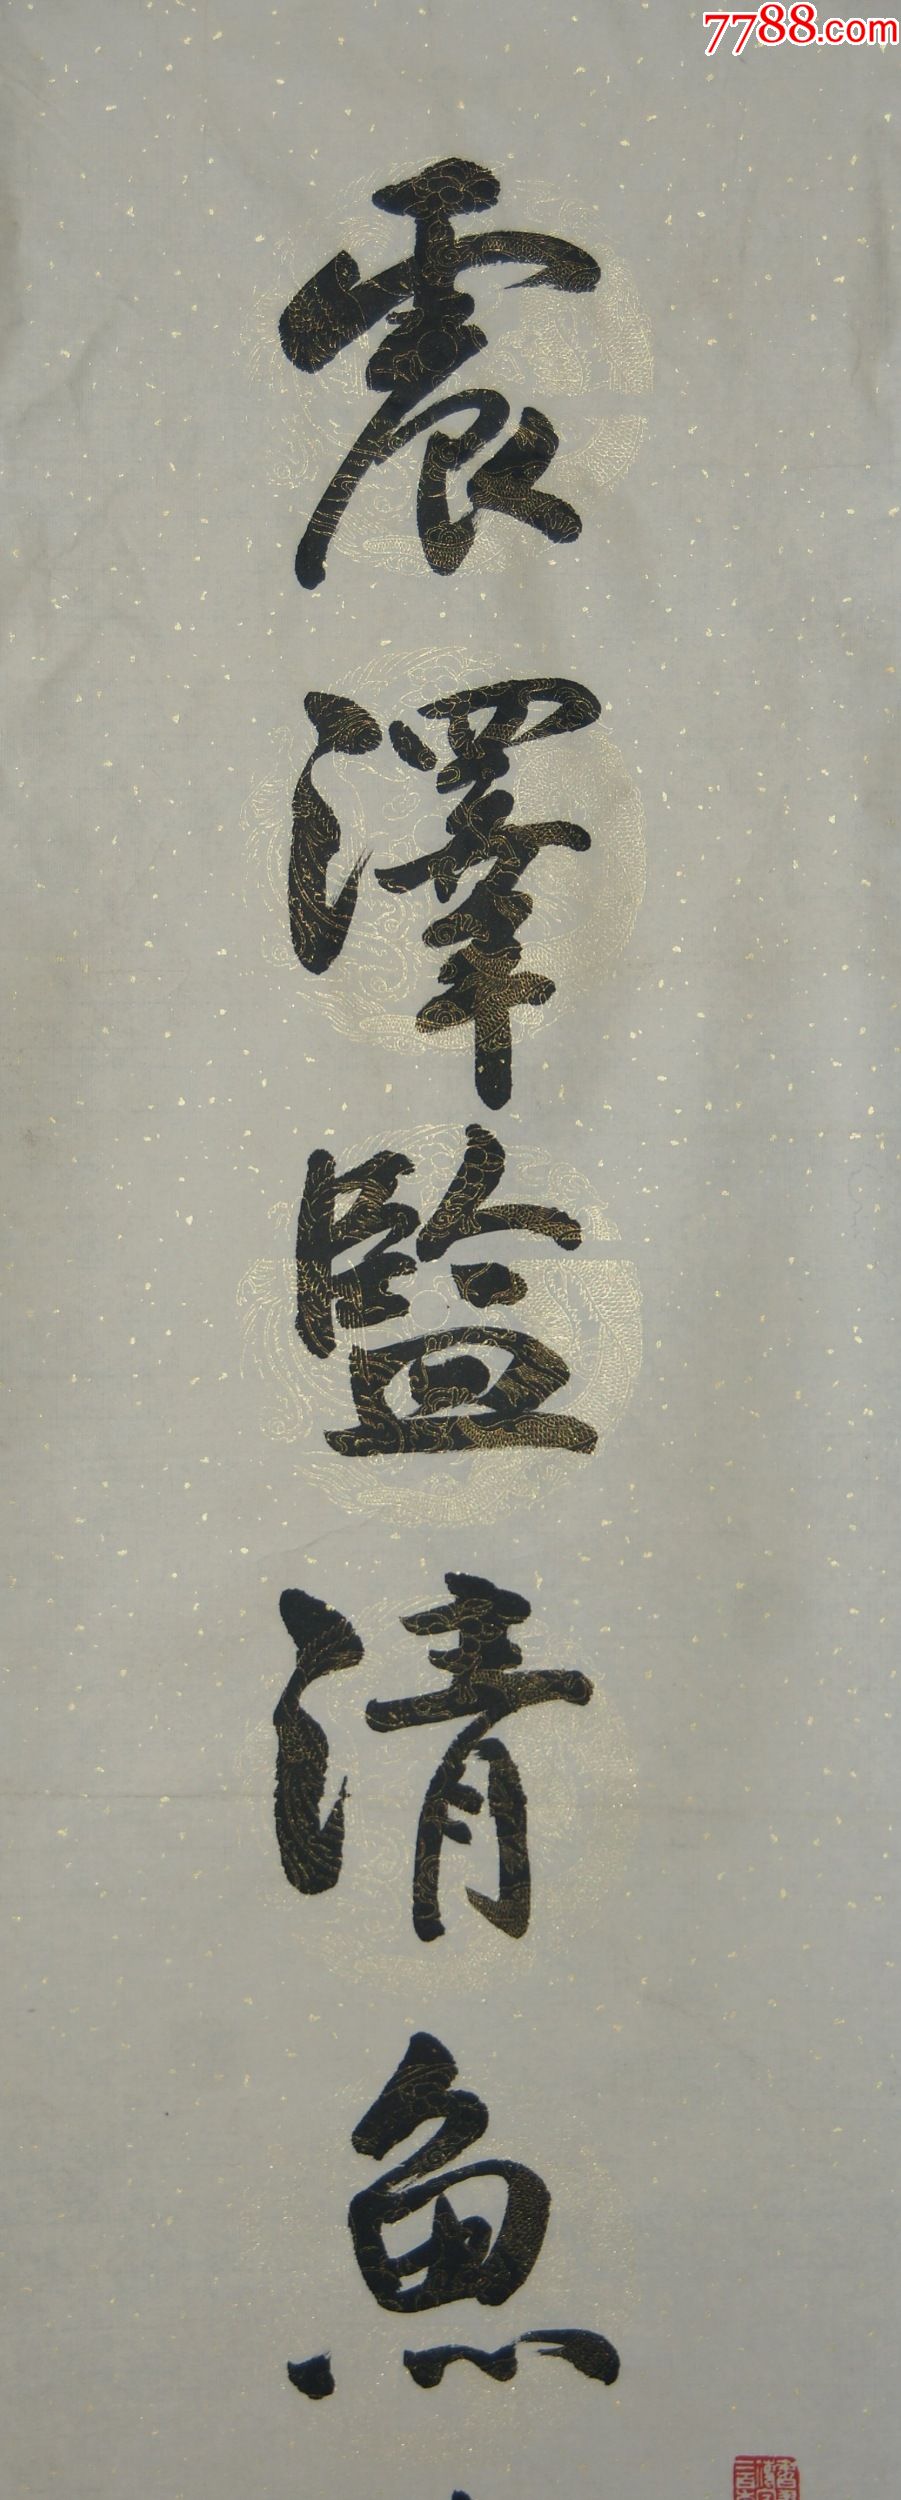 7788.com
震澤監清魚